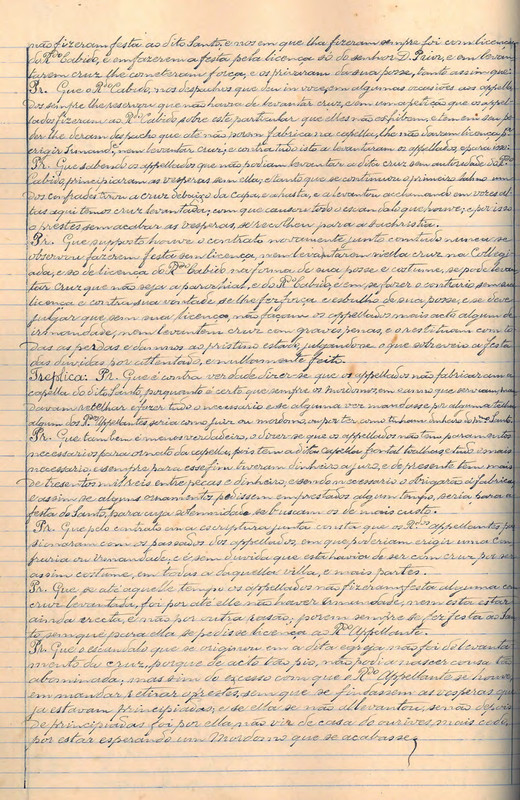 não fizeram festa ao dito Santo, e nos em que lha fizeram sempre foi com licença
do R.do Cabido, e em fazerem a festa pela licença só do senhor D. Prior, e em levan-
tarem cruz lhe cometeram força, e os privaram da sua posse, tanto assim que:
Pr. Que o R.do Cabido, nos despachos que deu in voce, em algumas occasiões aos appella-
dos sempre lhes reservou que não havia de levantar cruz, e em um a petição que os appel-
lados fizeram ao R.do Cabido sobre este particular que elles não exhibem, e tem em seu po-
der lhe deram despacho que até não porem fabrica na capella, lhe não davam licença p.a
erigir Irmand.e, nem levantar cruz; e contra tudo isto a levantaram os appellados, e para isso:
Pr. Que sabendo os appellados que não podiam levantar a dita cruz sem autoridade do R.do
Cabido, principiaram as vesperas sem ella; e tanto que se continuou o primeiro psalmo um
dos confrades tirou a cruz debaixo da capa, e a hasta, e a levantou acclamando em vozes al-
tas aqui temos cruz levantada; com que causou todo o escandalo que houve; e por isso
o prestes sem acabar as vesperas, se recolheu para a sachristia.
Pr. Que supposto houve o contrato novamente junto comtudo nunca se
observou fazerem festa sem licença, nem levantarem n'ella cruz na Collegi-
ada, e só de licença do R.do Cabido, na forma de sua posse e costume, se pode levan-
tar cruz que não seja a parochial, e do R.do Cabido, e em se fazer o contrario sem sua
licença e contra sua vontade se lhe fez força e esbulho de sua posse, e se deve
julgar que sem sua licença, não façam os appellados mais acto algum de
irmandade, nem levantem cruz com graves penas, e o restituam com to-
das as perdas e damnos ao pristino estado, julgando-se o que sobreveio á festa
das duvidas por attentado, e nullamente feito.
Treplica: Pr. Que é contra verdade dizer-se que os appellados não fabricaram a
capella do dito Santo, porquanto é certo que sempre os mordomos, em o anno que serviam, man-
davam retelhar e fazer tudo o necessario e se alguma vez mandasse por alguma telha
algum dos R.dos Appellantes seria como juiz ou mordomo, ou por ter, como tinham dinheiro do m.mo Santo.
Pr. Que tambem é menos verdadeiro, o dizer-se que os appellados não tem paramentos
necessarios para ornato da capella, pois tem a dita capella frontal toalhas, e tudo o mais
necessario, e sempre para esse fim tiveram dinheiro a juro, e de presente tem mais
de tresentos mil reis entre peças e dinheiro, e sendo necessario o obrigarão á fabrica
e assim se alguns ornamentos pedissem emprestados algum tempo, seria para a
festa do Santo, para cuja solemnidade se buscam os de mais custo.
Pr. Que pelo contrato em a escriptura junta consta que os R.dos appellantes po-
sionaram com os passados dos appellados, em que poderiam erigir uma con-
fraria ou irmandade, e é sem duvida que esta havia de ser com cruz por ser
assim costume, em todas a daquella villa, e mais partes.
Pr. Que, se até aquelle tempo os appellados não fizeram festa alguma com
cruz levantada, foi por até elle não haver irmandade, nem esta estar
ainda erecta, e não por outra rasão; porem sempre se fez festa ao San-
to, sem que para ella se pedisse licença ao R.do Appellante.
Pr. Que o escandalo que se originou em a dita egreja não foi do levanta-
mento da cruz, porque de acto tão pio, não podia nascer cousa tão
abominada; mas sim do excesso com que o R.do Appellante se houve
em mandar retirar o prestes, sem que se findassem as vesperas, que
ja estavam principiadas; e se ella se não allevantou, senão depois
de principiadas foi por ella não vir de casa do ourives, mais cedo,
por estar esperando um Mordomo que se acabasse;